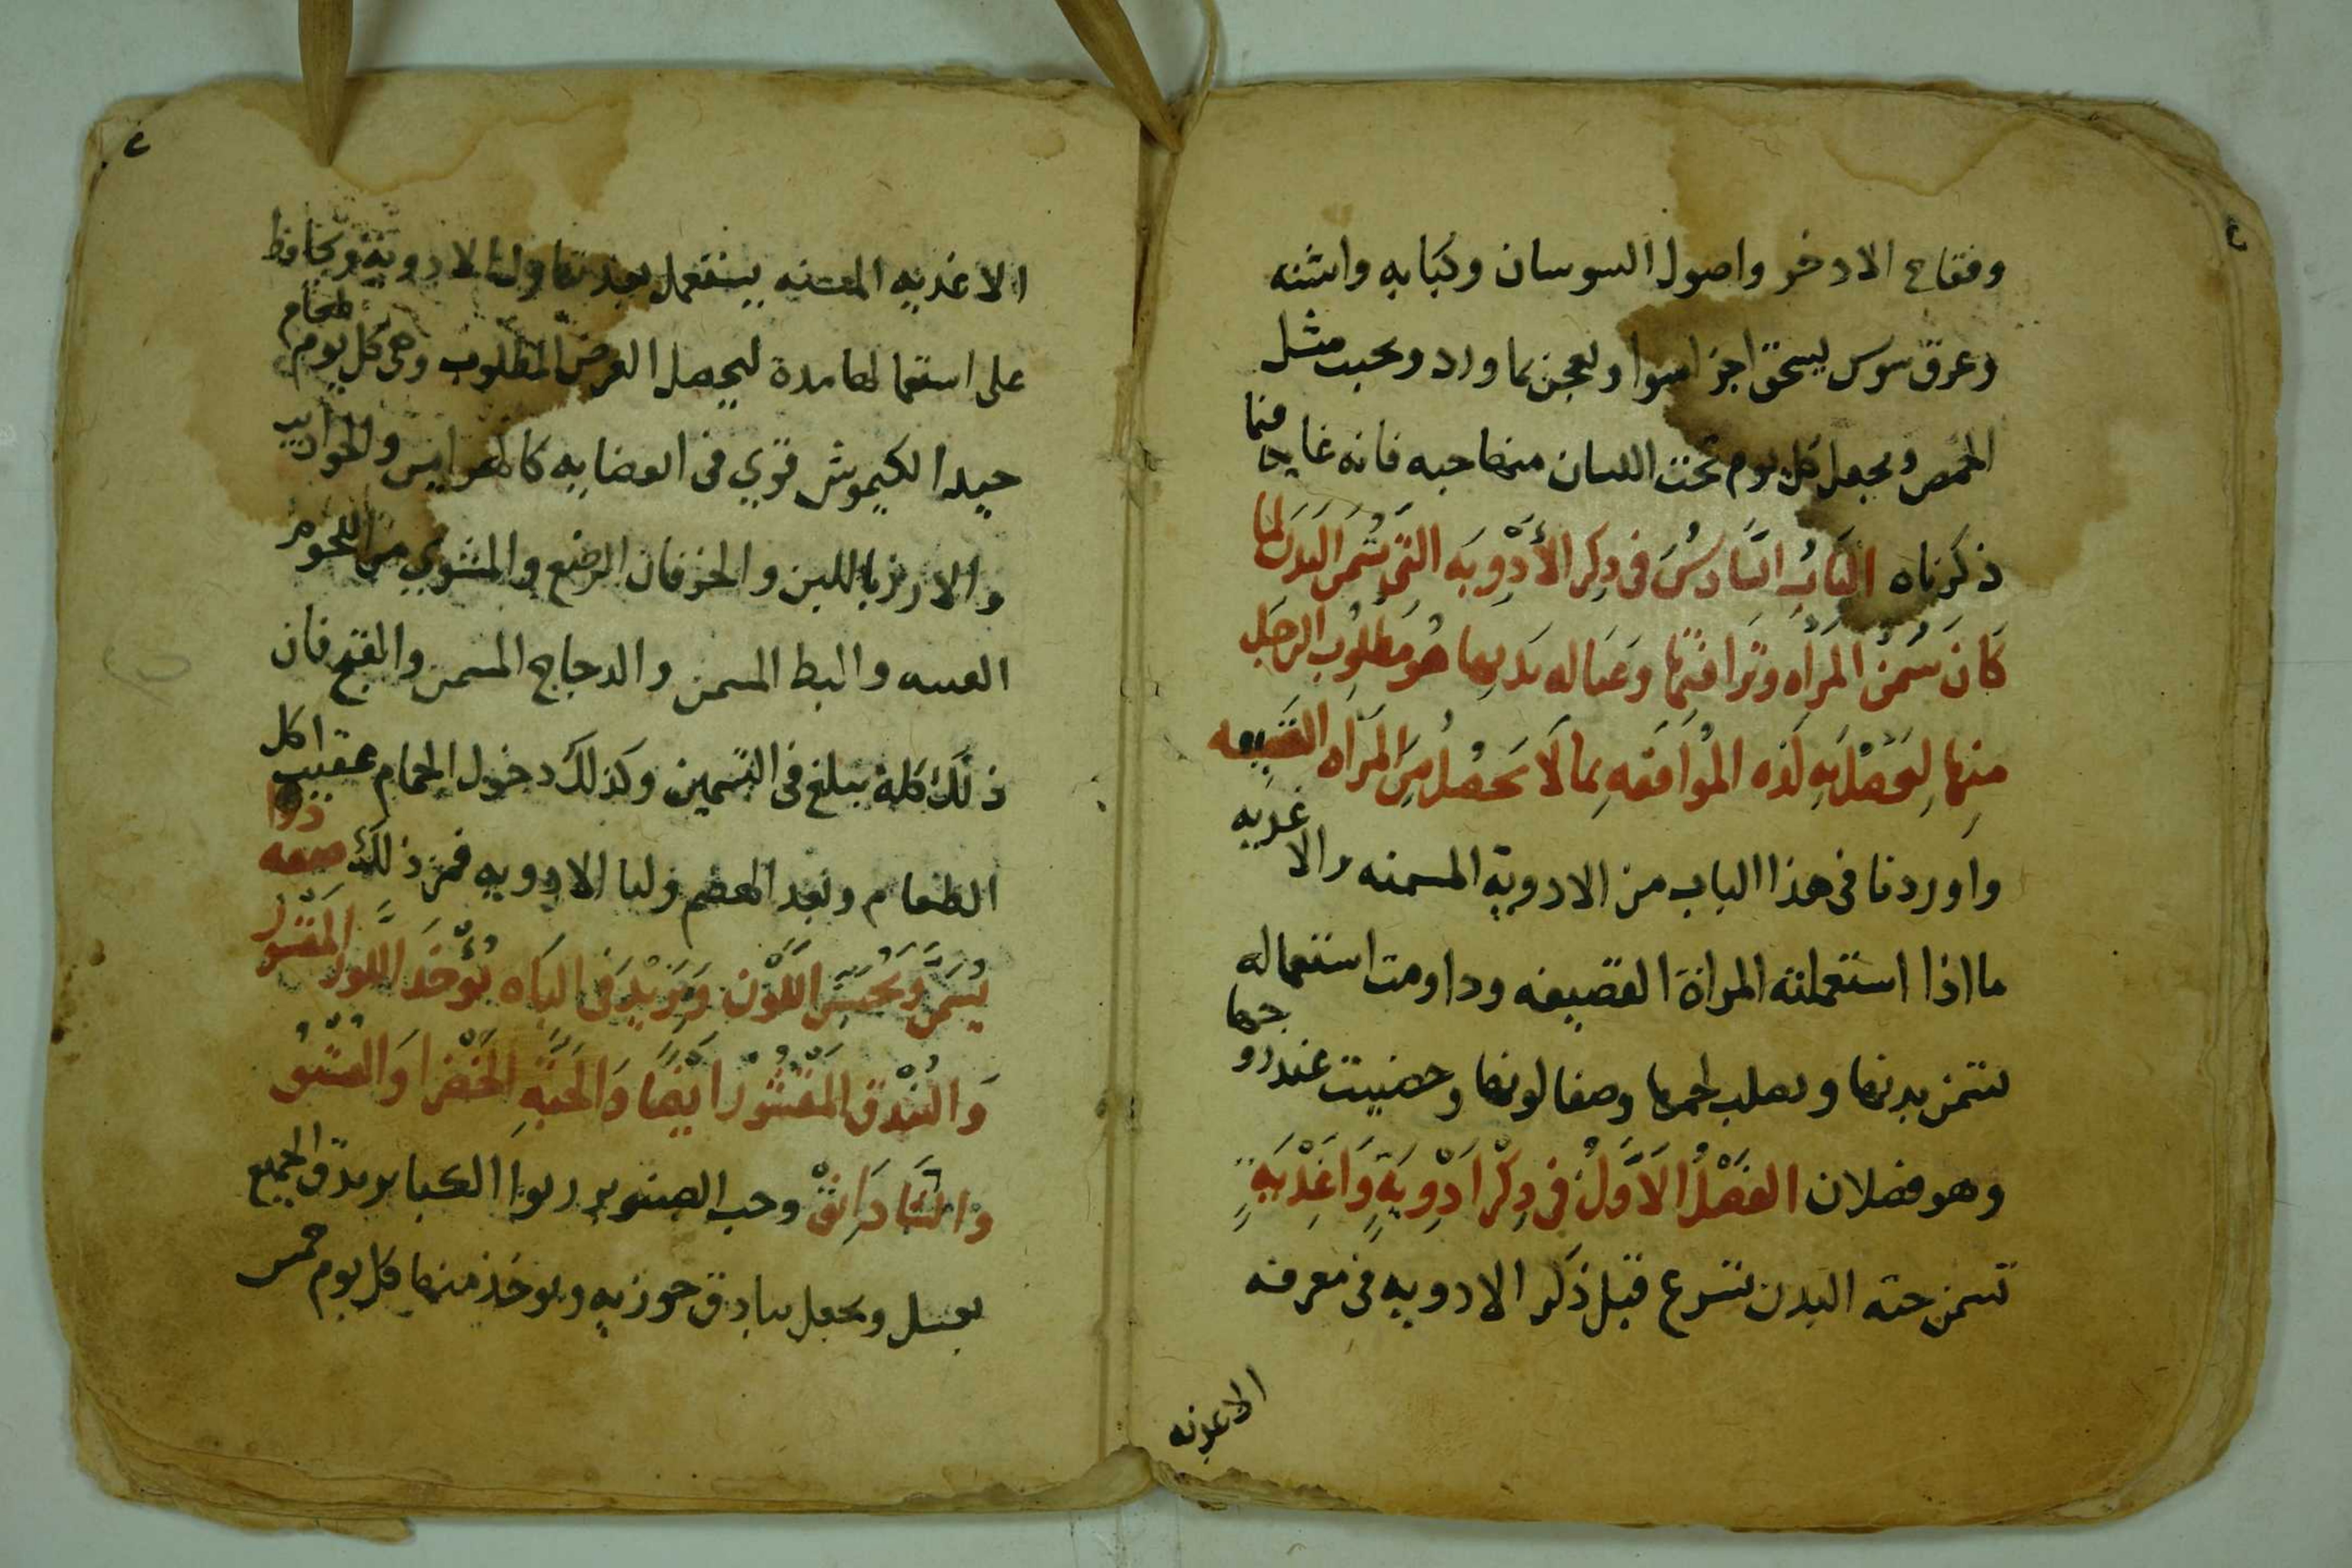 وفقاح الادخر واصول السوسان وكبابه واشنه
وعرق سوس يسحق اجزا سوا ويعجن بماورد ويحبب مثل
الحمص ويجعل كل يوم تحت اللسان منها حبه فانه غايه فيما
ذكرناه الباب السادس في ذكر الأدوية التي تسمن البدن لما
كان سمن المراه وترافتها وعباله بدنها هو مطلوب الرجل
منها لتحصل به لذه الموافقه بما لا يحصل من المراه القضيفه
واوردنا في هذا الباب من الادوية المسمنه والاغذيه
ما اذا استعملته المراة القضيفه وداومت استعماله
سمن بدنها وصلب لحمها وصفا لونها وحضيت عند زوجها
وهو فصلان الفصل الاول في ذكر ادوية واغذية
تسمن جثه البدن نشرع قبل ذكر الادويه في معرفه
الاغذيه
الاغذيه المسمنه يستعمل بعد تناول الادوية ويحافظ
على استعمالها مدة ليحصل الغرض المطلوب وهي كل يوم طعام
جيد الكيموس قوي في العضايه كالهرايس والجواديب
والارز باللبن والخرفان الرضع والمشوي من اللحوم
والبط المسمن والدجاج المسمن والقبج فان
ذلك كله يبلغ في التسمين وكذلك دخول الحمام عقيب اكل
الطعام وبعد الهضم ولنا الادويه فمن ذلك صفه دوا
يسمن ويحسن اللون ويزيد في الباه يؤخذ اللوز المقشور
والبندق المقشور ايضا والحبة الخضرا والفستق
والشادانق وحب الصنوبر الكبار يدق الجميع
بعسل ويجعل بنادق جوزيه ويوخذ منها كل يوم خمس